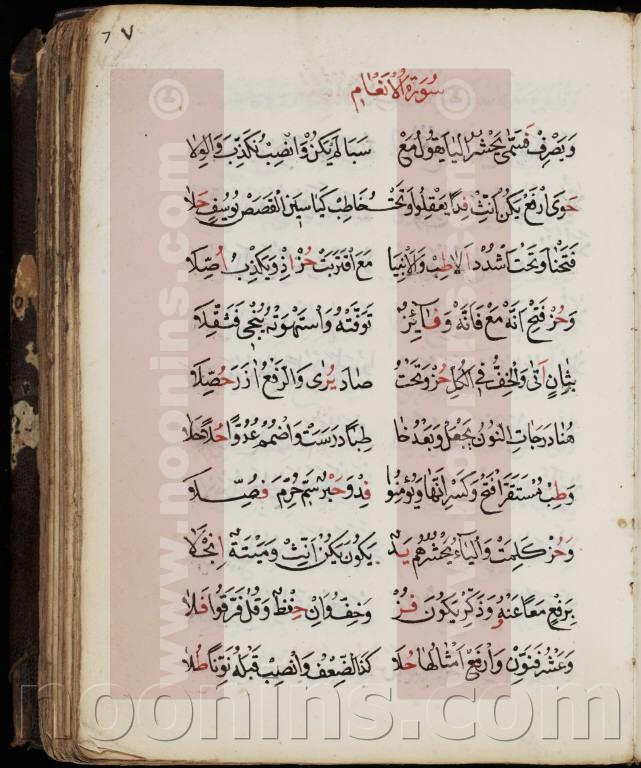 ٧
سورة الأنعام
ويصرف فسمى يحشر اليا يقول مع سبا لم يكن وانصب نكذب والولا
حوى ارفع يكن انث فدا يعقلوا وتحت خاطب كياسين القصص يوسف حلا
فتحنا وتحت اشدد الا طب والانبيا مع اقتربت حز اذ ويكذب اصلا
وحز فتح انه مع فانه وفائز توفته واستهوته ينجي فثقلا
بثان اتى والخف في الكل حز وتحت صاد يرى والرفع ازر حصلا
هنا درجات النون يجعل وبعد خا طبا درست واضمم عدوا حلا حلا
وطب مستقر افتح وكسر انها ويؤمنوا فد وحبر سم حرم فصلا
وحز كلمت والياء يحشرهم يد يكون يكن انث وميتة انجلا
برفع معا عنه وذكر يكون فز وخف وان حفظ وقل فرقوا فلا
وعشر فنون وارفع امثالها حلا كذا الضعف وانصب قبله نونا طلا
www.noonins.com
www.noonins.com
noonins.com